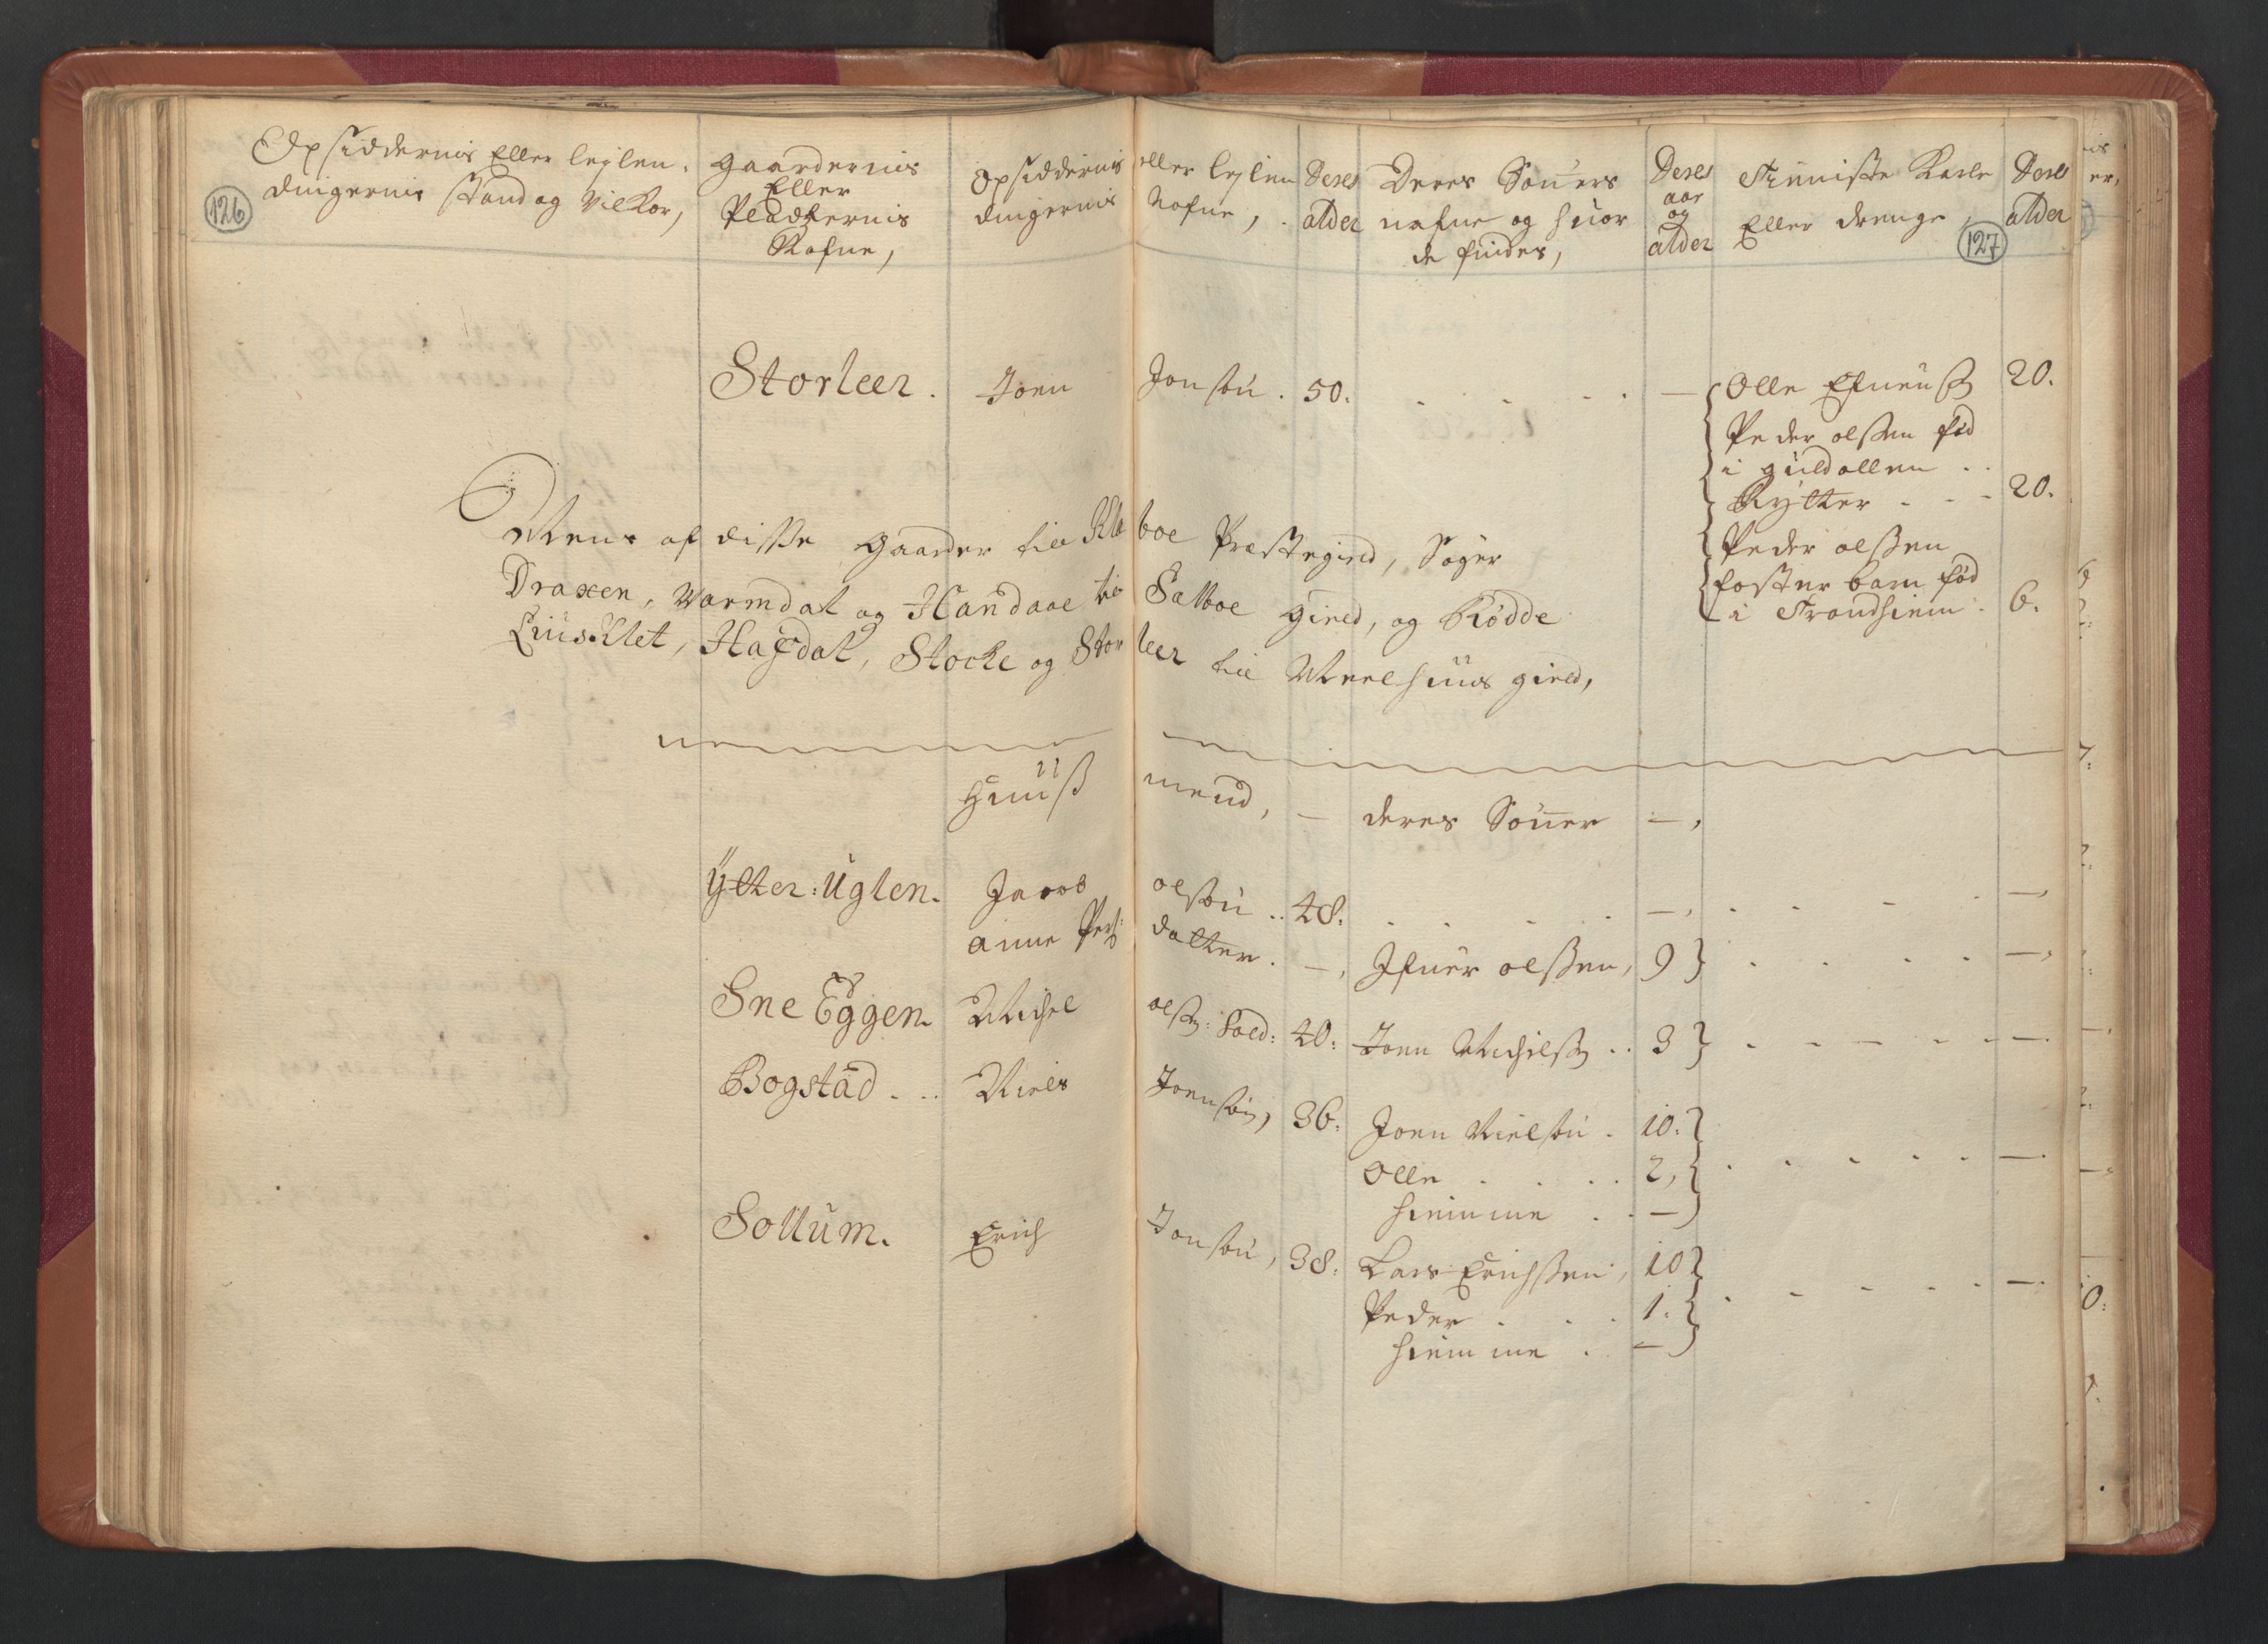 126
Opsiddernis Eller leylen-
dingernis stand og vilkor,
gaardernis
Eller
Pladzernis
Nafne,
Opsiddernis eller leylen
dingernis Nafne,
Deres
alder
Deres Søners
nafne og huor
de findes,
Deres
aar
og
alder
Tienniste Karle
Eller drenge,
127
Deres
alder
Storleer. Joen Jonsøn. 50. . . . . —
Olle Efuensen 20.
Peder olssen fød
i guldallen . .
Rytter . . . 20.
Peder olssen
foster barn fød
i Trondhiem. 6.
Mens af disse gaarder til Kleboe Præstegield, Søger
Draxen, Warmdal og Handaae til Salboe gield, og Rødde
Liusklet, Hafdal, Stocke og Storleer til Meelhuus gield,
Huuß mend, — deres Søner —,
Ÿtter: Uglen. Jacob olsøn .. 48. . . . . —, . . . . —,
anne Pers: datter. —, Ifuer olssen, 9 } . . . . —,
Sne Eggen. Michel olss: Sold: 40: Joen Michelss .. 3 } . . . . . —.
Bogstad ... Niels Joensøn, 36: Joen Nielsøn . 10:
Olle . . . . 2, . . . . . —.
hiemme . . —
Sollum. Erich Jonsøn, 38: Lars Erichssen, 10
Peder . . . 1. . . . . —.
hiemme . —